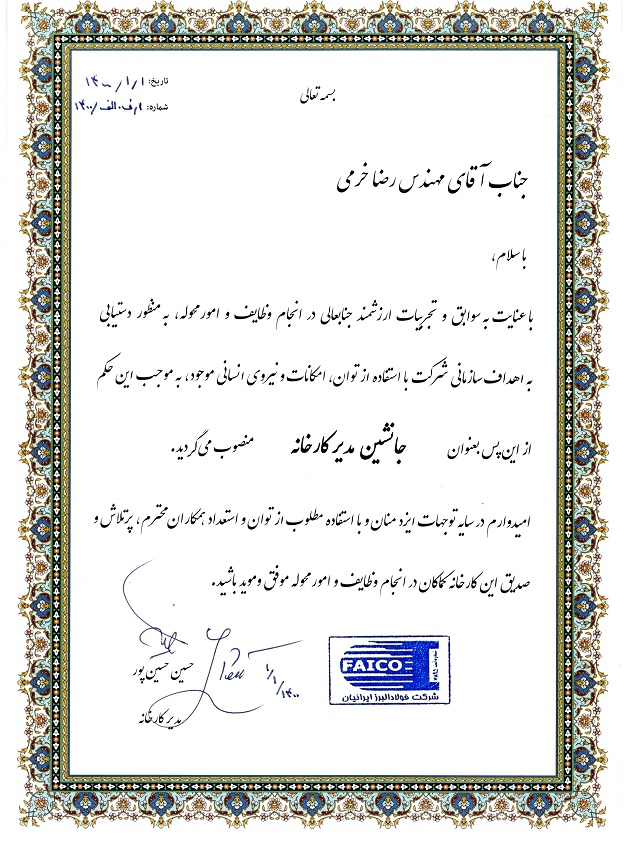 بسمه تعالی
تاریخ: ۱۴۰۰/۱/۱
شماره: ۱/ف.الف/۱۴۰۰
جناب آقای مهندس رضا خرمی
با سلام،
با عنایت به سوابق و تجربیات ارزشمند جنابعالی در انجام وظایف و امور محوله، به منظور دستیابی
به اهداف سازمانی شرکت با استفاده از توان، امکانات و نیروی انسانی موجود، به موجب این حکم
از این پس بعنوان جانشین مدیر کارخانه منصوب می گردید.
امیدوارم در سایه توجهات ایزد منان و با استفاده مطلوب از توان و استعداد همکاران محترم، پرتلاش و
صدیق این کارخانه کماکان در انجام وظایف و امور محوله موفق و موید باشید.
حسین حسین پور
مدیر کارخانه
۱۴۰۰/۱/۱
FAICO
شرکت فولاد البرز ایرانیان